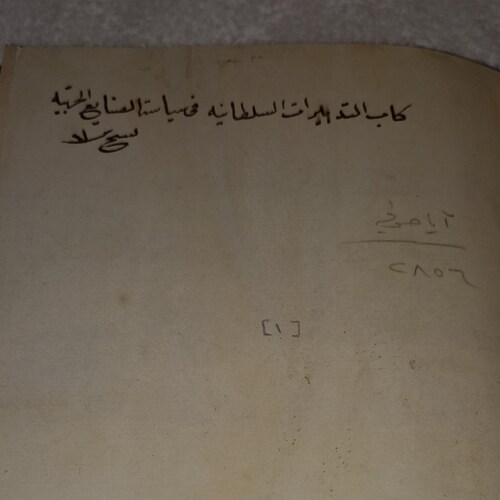 كتاب التدبيرات السلطانيه فى سياسة الصنايع الحربيه
آيا صوفيه
٢٨٥٦
[١]